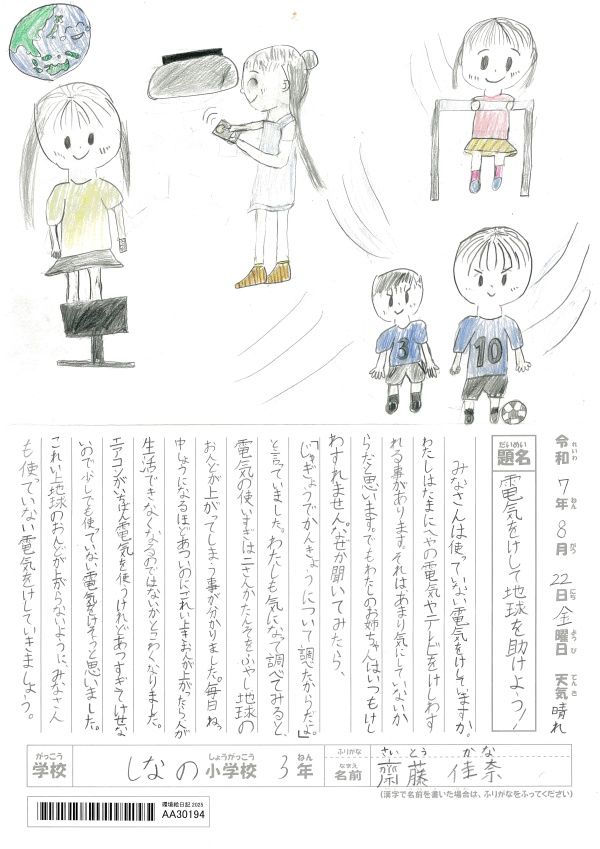 3
10
令和7年8月22日金曜日 天気 晴れ
れいわ ねん がつ にち ようび てんき
だいめい
題名
電気をけして地球を助けよう!
みなさんは使っていない電気をけしていますか。
わたしはたまにへやの電気やテレビをけしわす
れる事があります。それは、あまり気にしていないか
らだと思います。でもわたしのお姉ちゃんはいつもけし
わすれません。なぜか聞いてみたら、
「じゅぎょうでかんきょうについて調べたからだよ。」
と言っていました。わたしも気になって調べてみると、
電気の使いすぎは二さんかたんそをふやし地球の
おんどが上がってしまう事が分かりました。毎日ねっ
中しょうになるほどあついのにこれい上きおんが上がったら人が
生活できなくなるのではないかとこわくなりました。
エアコンがいちばん電気を使うけれどあつすぎてけせな
いので少しでも使っていない電気をけそうと思いました。
これい上地球のおんどが上がらないように、みなさん
も使っていない電気をけしていきましょう。
がっこう しょうがっこう ねん
学校 しなの小学校 3年
ふりがな さいとう かな
なまえ
名前 齋藤 佳奈
(漢字で名前を書いた場合は、ふりがなをふってください)
環境絵日記2025
AA30194